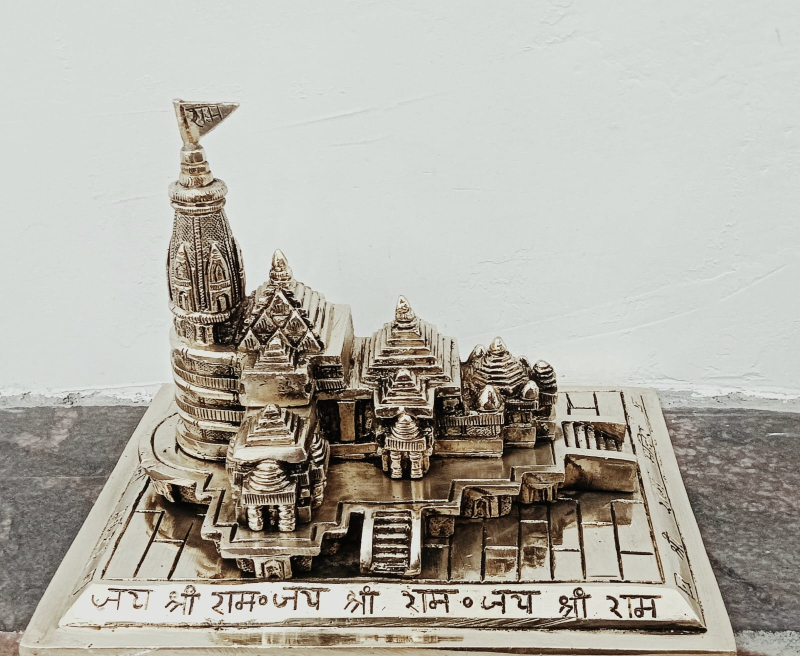 राम
जय श्री राम॰जय श्री राम॰जय श्री राम